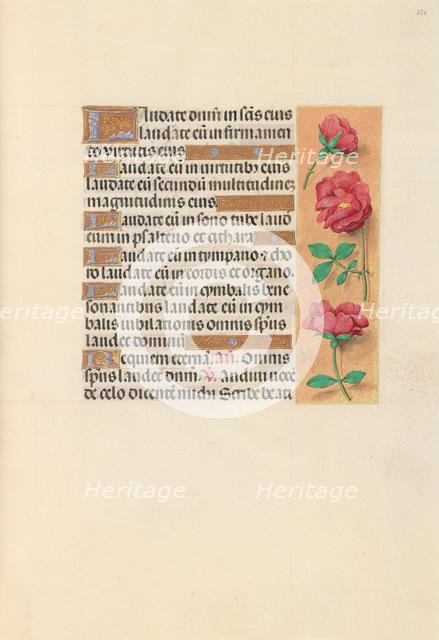 Laudate dnm̄ in scīs eius
laudate eū in firmamen
to virtutis eius
Laudate eū in virtutibꝰ eius
laudate eū secundū multitudinez
magnitudinis eius
Laudate eū in sono tube laud
eum in psalterio et cithara
Laudate eū in tympano ⁊ cho
ro laudate eū in cordis et organo.
Laudate eū in cymbalis bene
sonātibus laudate eū in cym
balis iubilationis omnis spūs
laudet dominū
Requiem eternā. Añ. Omnis
spūs laudet dnm̄. V̄. Audivi voce
de celo dicentē michi Scribe beati
Heritage Heritage Heritage
Heritage Heritage Heritage
Heritage Heritage Heritage